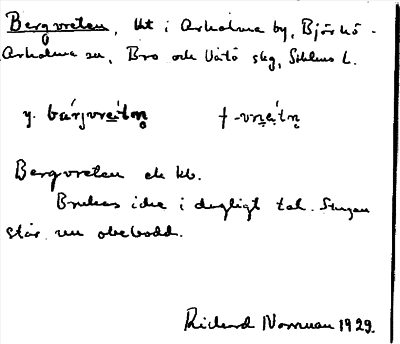 Bergvreten, lht i Arholma by, Björkö-
Arholma sn, Bro och Vätö skg, Sthlms l.
y. bárjvre͔ítn̥ † -vre͔ítn̥
Bergvreten ek kb.
Brukas icke i dagligt tal. Stugan
står nu obebodd.
Richard Norrman 1929.